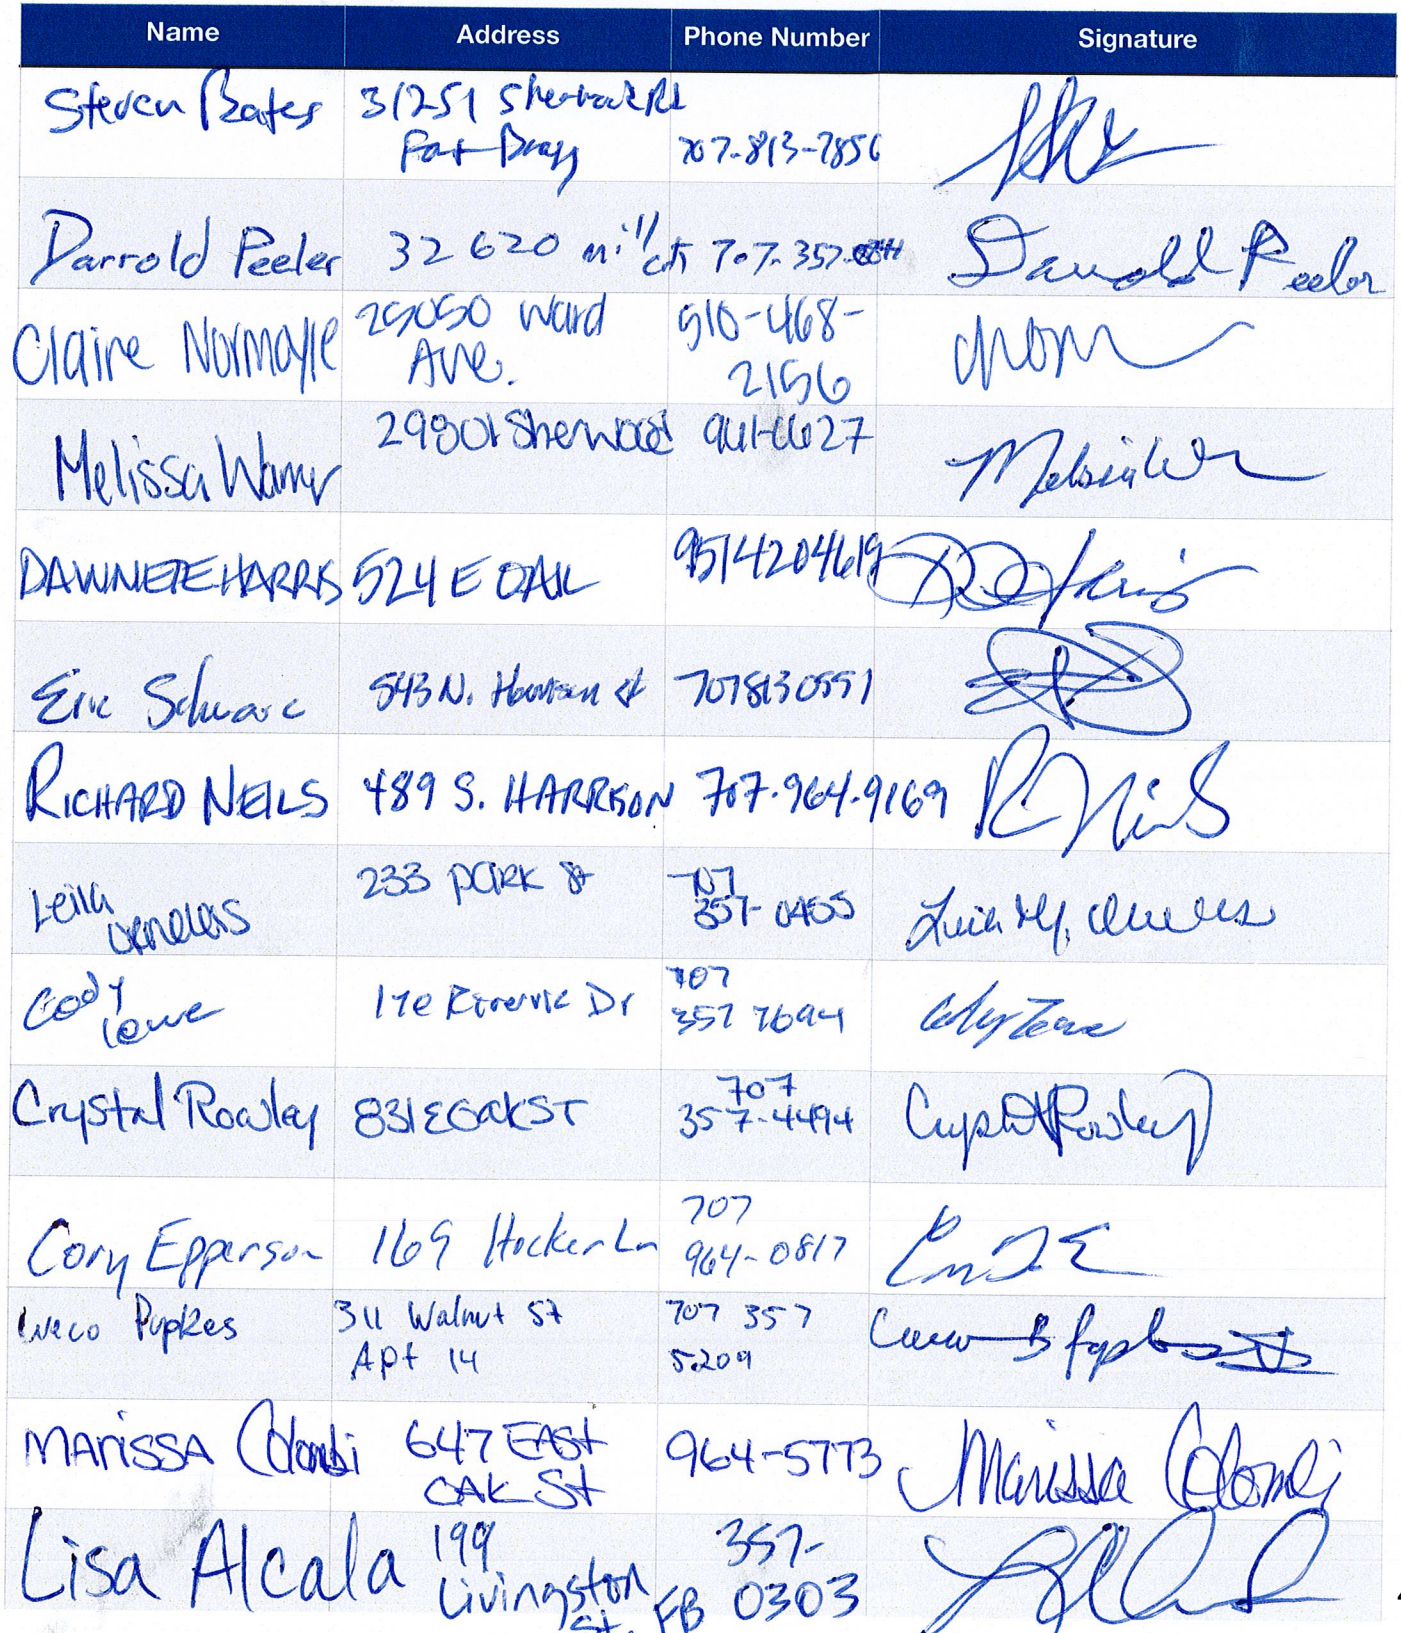 Name Address Phone Number Signature
Steven Bates 31251 Sherwood Rd
Fort Bragg 707-813-7856
Darrold Peeler 32620 mill 707-357-
Darrold Peeler
Claire Normoyle 25050 Ward 510-468-
Ave. 2156
Melissa 29801 Sherwood 961-6627
DAWNETE HARRIS 524 E OAK 9514204619
Eric Schwarc 543 N. Harrison st 7078130551
RICHARD NEILS 489 S. HARRISON 707-964-9169
Leila 233 PARK St 707
357-0455
Cody 170 Dr 707
Lowe 357 7694
Crystal Rowley 831 E Oak ST 707
357-4494 Crystal Rowley
Cory Epperson 169 Hocker Ln 707
964-0817
Pupkes 311 Walnut St 707 357
Apt 14 5209
MARISSA Colombi 647 EAST 964-5773 Marissa Colombi
OAK St
Lisa Alcala 199 357-
Livingston 0303
St. FB